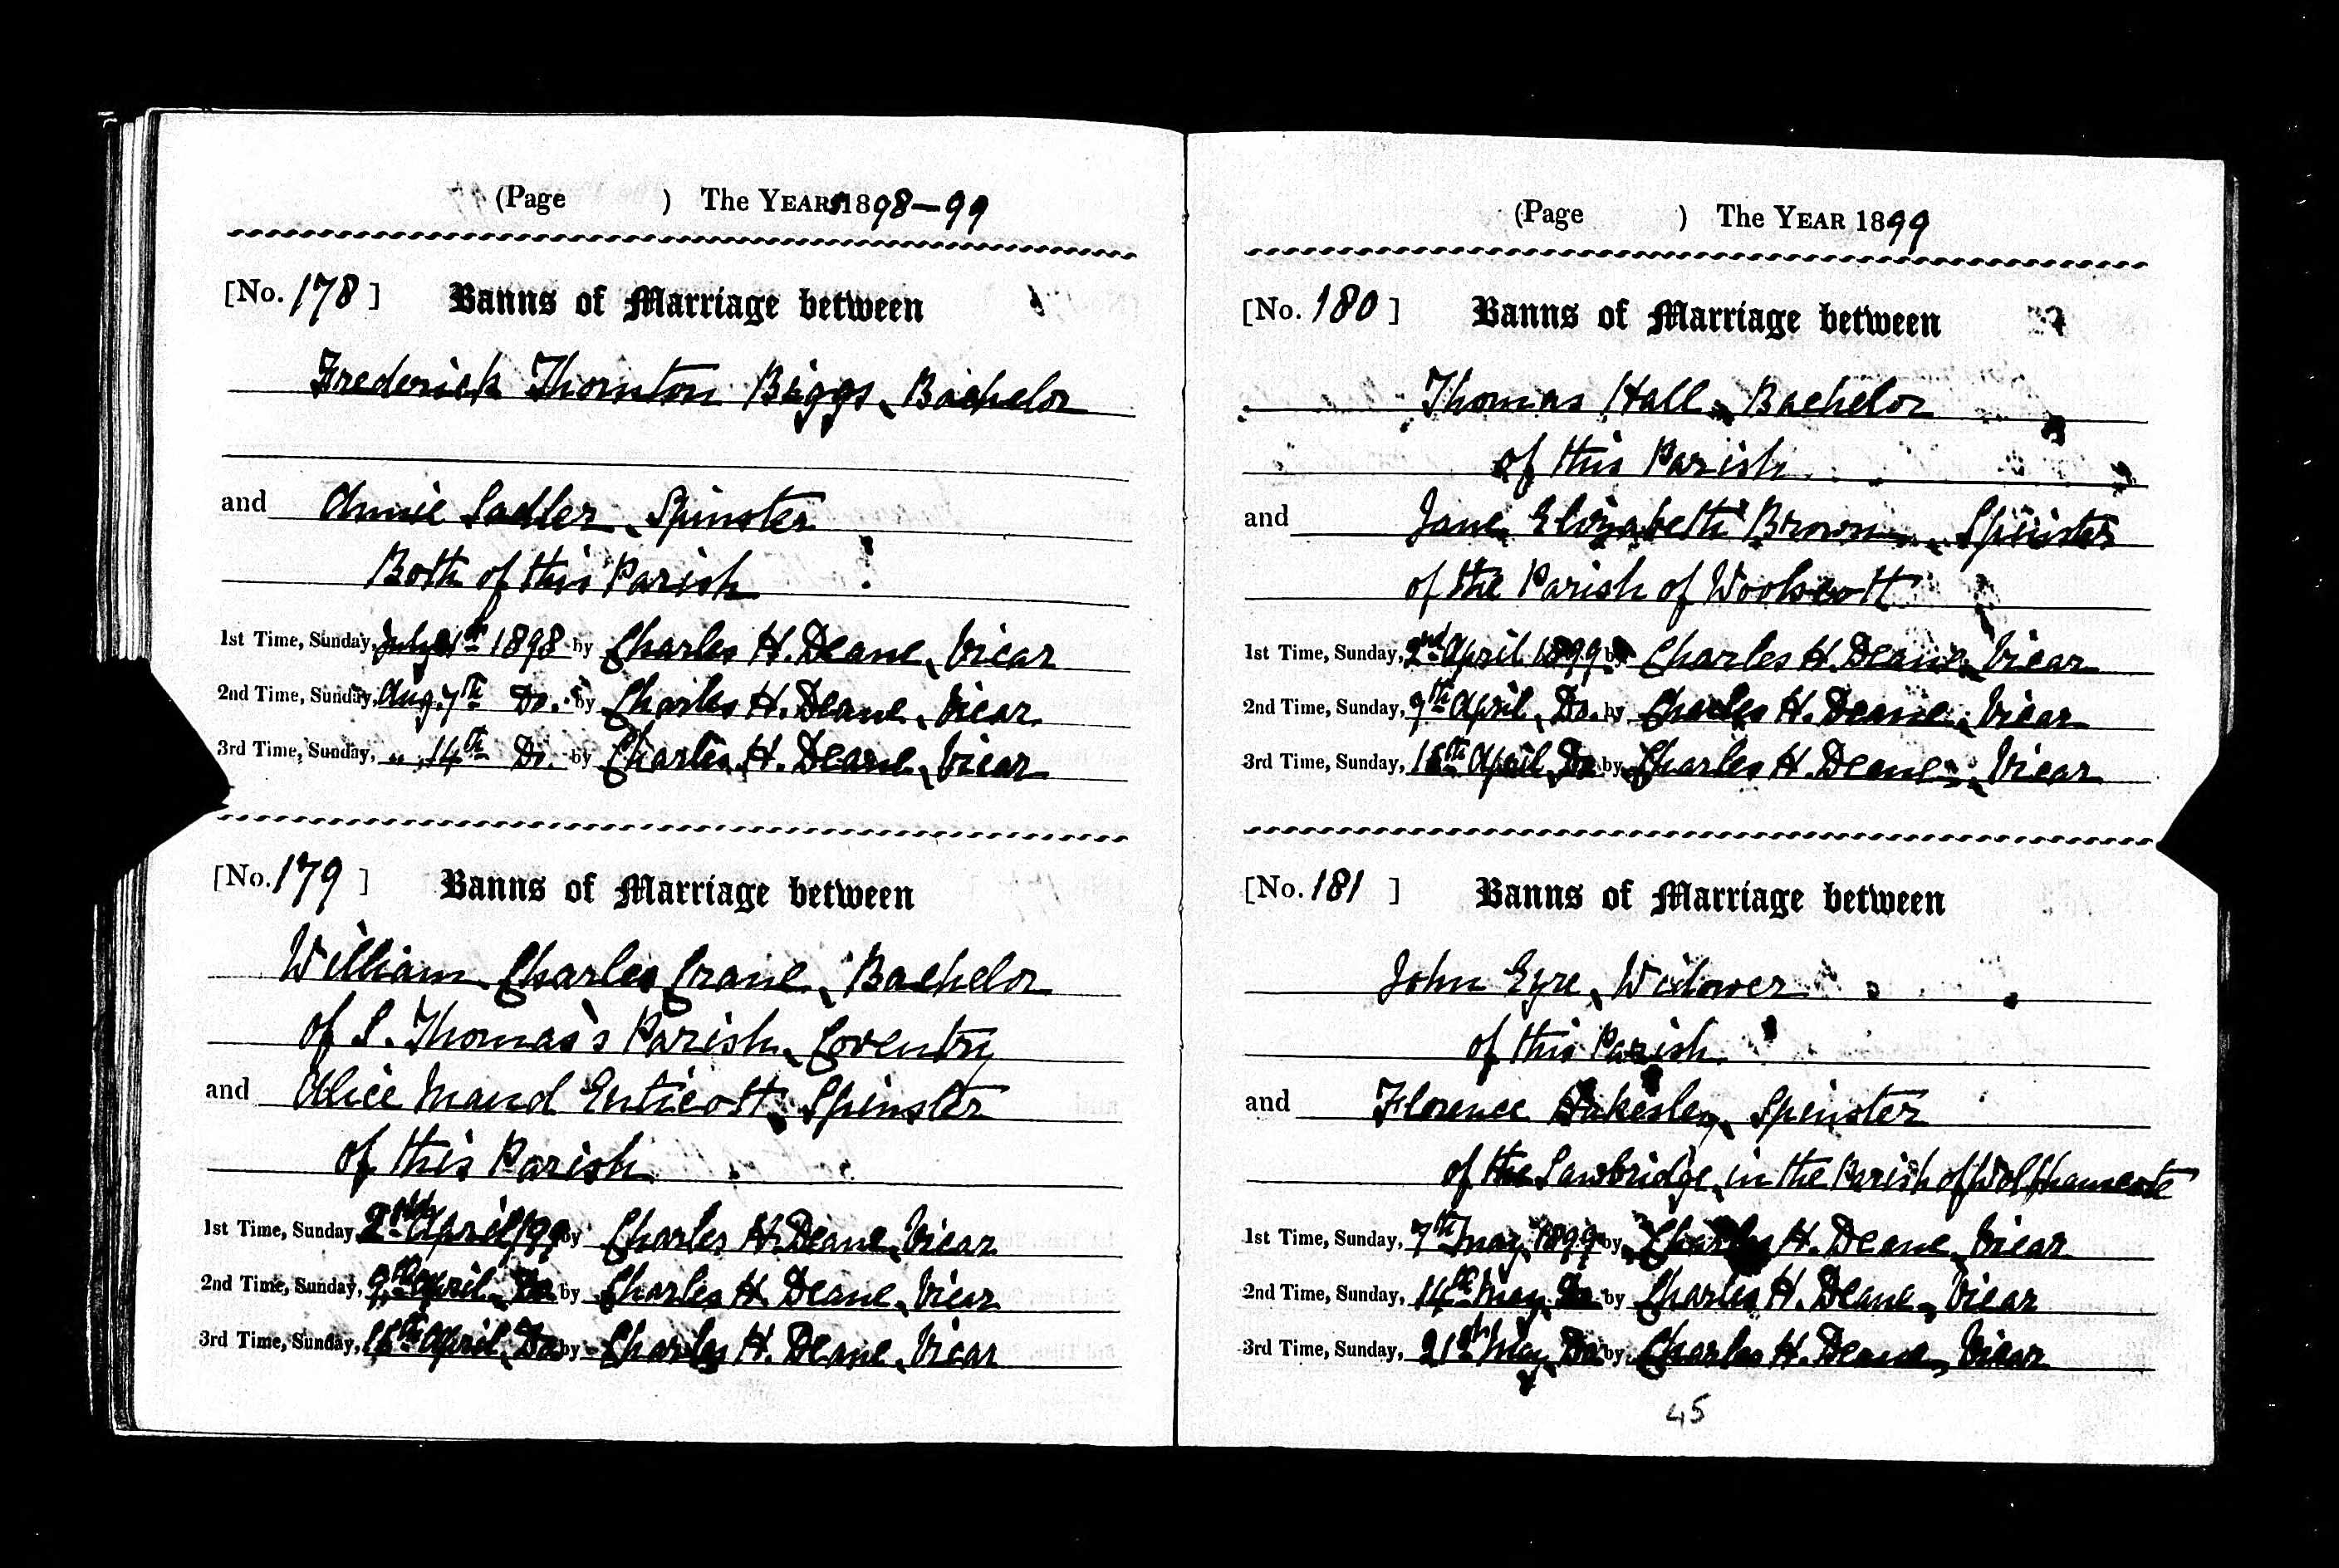 (Page ) The YEARS 1898–99
[No. 178 ] Banns of Marriage between
Frederick Thornton Biggs, Bachelor
and Annie Sadler, Spinster
Both of this Parish
1st Time, Sunday, July 31st 1898 by Charles H. Deane, Vicar
2nd Time, Sunday, Aug. 7th Do. by Charles H. Deane, Vicar
3rd Time, Sunday, " 14th Do. by Charles H. Deane, Vicar
[No. 179 ] Banns of Marriage between
William Charles Crane, Bachelor
of S. Thomas's Parish, Coventry
and Alice Maud Enticott, Spinster
of this Parish
1st Time, Sunday, 2nd April /99 by Charles H. Deane, Vicar
2nd Time, Sunday, 9th April, Do. by Charles H. Deane, Vicar
3rd Time, Sunday, 16th April, Do. by Charles H. Deane, Vicar
(Page ) The YEAR 1899
[No. 180 ] Banns of Marriage between
Thomas Hall, Bachelor
of this Parish
and Jane Elizabeth Brown, Spinster
of the Parish of Woolscott
1st Time, Sunday, 2nd April 1899 by Charles H. Deane, Vicar
2nd Time, Sunday, 9th April, Do. by Charles H. Deane, Vicar
3rd Time, Sunday, 16th April, Do by Charles H. Deane, Vicar
[No. 181 ] Banns of Marriage between
John Eyre, Widower
of this Parish
and Florence Spinster
of the Sawbridge, in the Parish of Wolfhamcote
1st Time, Sunday, 7th May, 1899 by Charles H. Deane, Vicar
2nd Time, Sunday, 14th May, Do. by Charles H. Deane, Vicar
3rd Time, Sunday, 21st May, Do by Charles H. Deane, Vicar
45